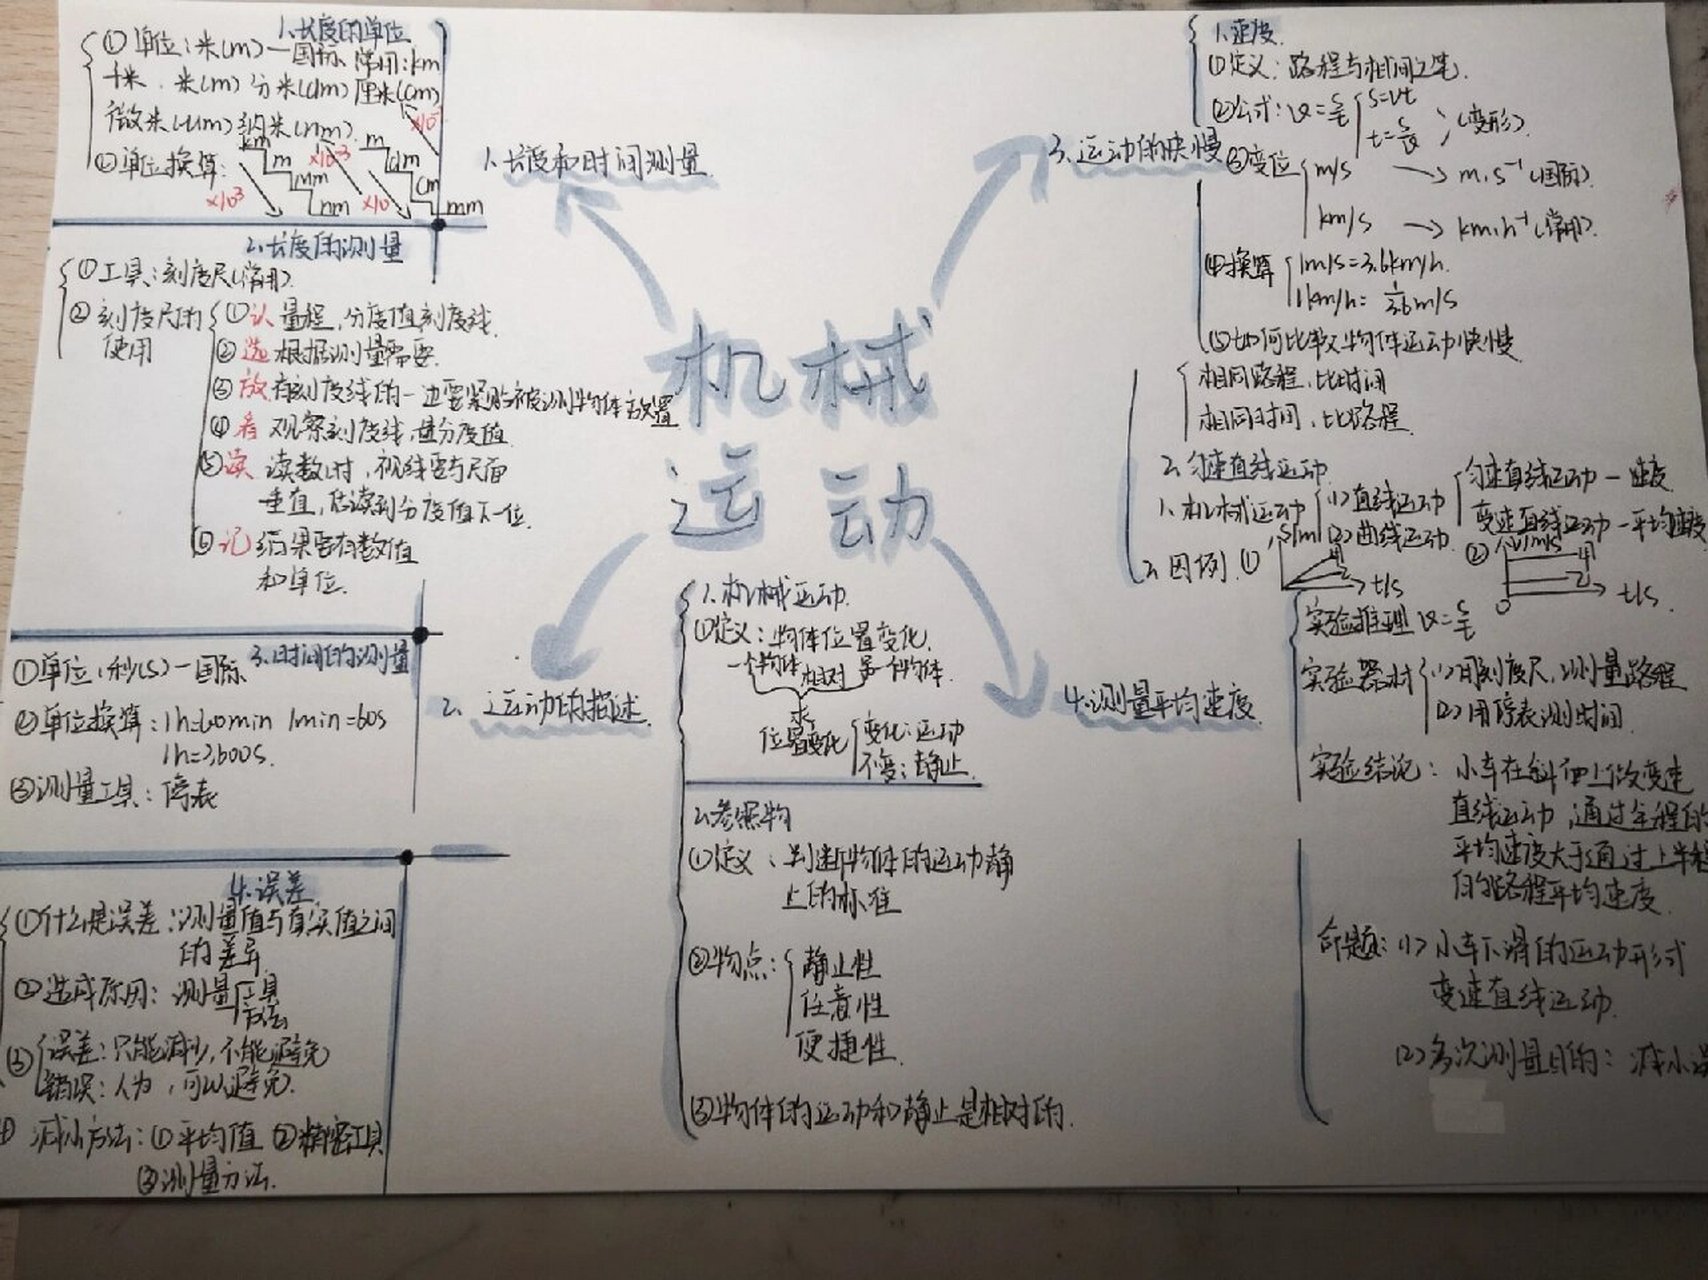 机械
运动
1.长度和时间测量
1.长度的单位
①单位:米(m)—国际 常用:km
千米.米(m)分米(dm)厘米(cm)
微米(μm)纳米(nm)
②单位换算:
km m μm nm
×10³ ×10⁻³
m dm cm mm
×10
2.长度的测量
①工具:刻度尺(常用).
②刻度尺的
使用
①认 量程,分度值刻度线.
②选 根据测量需要.
③放 有刻度线的一边要紧贴被测物体放置
④看 观察刻度线,量分度值
⑤读 读数时,视线要与尺面
垂直,估读到分度值下一位.
⑥记 结果要有数值
和单位.
3.时间的测量
①单位:秒(s)—国际
②单位换算:1h=60min 1min=60s
1h=3600s.
③测量工具:停表
4.误差
①什么是误差:测量值与真实值之间
的差异
②造成原因:测量工具
方法
③误差:只能减少,不能避免
错误:人为,可以避免.
减小方法:①平均值 ②精密工具
③测量方法.
2.运动的描述
1.机械运动.
①定义:物体位置变化.
一个物体 相对 另一个物体.
位置变化
变化:运动
不变:静止.
2.参照物
①定义:判断物体的运动静
止的标准
②物点:
静止性
任意性
便捷性.
③物体的运动和静止是相对的.
3.运动的快慢
1.速度.
①定义:路程与时间之笔.
②公式:v=s/t
s=vt
t=s/v
(变形).
③变位
m/s → m.s⁻¹(国际).
km/s → km.h⁻¹(常用).
④换算
1m/s=3.6km/h.
1km/h=1/3.6m/s
⑤如何比较物体运动快慢
相同路程,比时间
相同时间,比路程.
2.匀速直线运动.
1.机械运动
(1)直线运动
(2)曲线运动.
匀速直线运动—速度
变速直线运动—平均速度
2.图例.① s/m t/s
② v/m/s 0 t/s.
4.测量平均速度.
实验推理 v=s/t
实验器材
(1)用刻度尺,测量路程
(2)用停表测时间.
实验结论:小车在斜面上做变速
直线运动,通过全程的
平均速度大于通过上半程
的路程平均速度.
命题:(1)小车下滑的运动形式
变速直线运动.
(2)多次测量目的:减小误